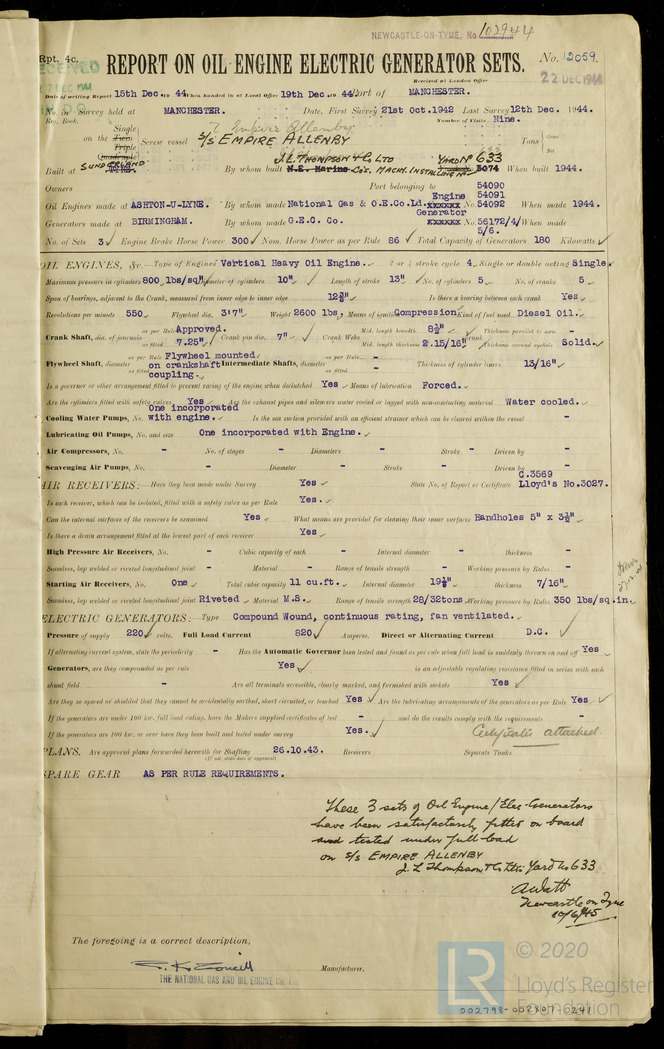 NEWCASTLE-ON-TYNE, No 102944
Rpt. 4c.
RECEIVED
DEC 1944
REPORT ON OIL ENGINE ELECTRIC GENERATOR SETS.
No. 12059.
Received at London Office
22 DEC 1944
Date of writing Report 15th Dec. 19 44. When handed in at Local Office 19th Dec. 19 44. Port of MANCHESTER.
No. in Survey held at MANCHESTER. Date, First Survey 21st Oct. 1942 Last Survey 12th Dec. 1944.
Reg. Book. Number of Visits Nine.
Single
on the Twin Triple Quadruple Screw vessel S/S EMPIRE ALLENBY Tons
Empire Allenby
Built at SUNDERLAND By whom built J.L. THOMPSON & Co LTD YARD No 633 When built 1944.
N.E. Marine Co's. MACHY. INSTALLING No 3074
Owners Port belonging to
Oil Engines made at ASHTON-U-LYNE. By whom made National Gas & O.E.Co.Ld. Engine No. 54090 54091 54092 When made 1944.
Generators made at BIRMINGHAM. By whom made G.E.C. Co. Generator No. 56172/4/5/6. When made
No. of Sets 3 Engine Brake Horse Power 300 Nom. Horse Power as per Rule 86 Total Capacity of Generators 180 Kilowatts.
OIL ENGINES, &c.—Type of Engines Vertical Heavy Oil Engine. 2 or 4 stroke cycle 4 Single or double acting Single
Maximum pressure in cylinders 800 lbs/sq" Diameter of cylinders 10" Length of stroke 13" No. of cylinders 5 No. of cranks 5
Span of bearings, adjacent to the Crank, measured from inner edge to inner edge 12⅜" Is there a bearing between each crank Yes
Revolutions per minute 550 Flywheel dia. 3'7" Weight 2600 lbs. Means of ignition Compression Kind of fuel used Diesel Oil.
Crank Shaft, dia. of journals as per Rule Approved. as fitted 7.25" Crank pin dia. 7" Crank Webs Mid. length breadth 8½" Mid. length thickness 2.15/16" Thickness parallel to axis - Thickness around eyehole Solid.
Flywheel Shaft, diameter as per Rule Flywheel mounted on crankshaft coupling. as fitted Intermediate Shafts, diameter as per Rule - as fitted - Thickness of cylinder liners 13/16"
Is a governor or other arrangement fitted to prevent racing of the engine when declutched Yes Means of lubrication Forced.
Are the cylinders fitted with safety valves Yes Are the exhaust pipes and silencers water cooled or lagged with non-conducting material Water cooled.
Cooling Water Pumps, No. One incorporated with engine. Is the sea suction provided with an efficient strainer which can be cleared within the vessel -
Lubricating Oil Pumps, No. and size One incorporated with Engine.
Air Compressors, No. - No. of stages - Diameters - Stroke - Driven by -
Scavenging Air Pumps, No. - Diameter - Stroke - Driven by -
AIR RECEIVERS:—Have they been made under Survey Yes State No. of Report or Certificate C.3569 Lloyd's No.3027.
Is each receiver, which can be isolated, fitted with a safety valve as per Rule Yes.
Can the internal surfaces of the receivers be examined Yes What means are provided for cleaning their inner surfaces Handholes 5" x 3½"
Is there a drain arrangement fitted at the lowest part of each receiver Yes
High Pressure Air Receivers, No. - Cubic capacity of each - Internal diameter - thickness -
Seamless, lap welded or riveted longitudinal joint - Material - Range of tensile strength - Working pressure by Rules -
Starting Air Receivers, No. One Total cubic capacity 11 cu.ft. Internal diameter 19½" thickness 7/16"
Seamless, lap welded or riveted longitudinal joint Riveted Material M.S. Range of tensile strength 28/32tons Working pressure by Rules 350 lbs/sq.in.
ELECTRIC GENERATORS: Type Compound Wound, continuous rating, fan ventilated.
Pressure of supply 220 volts. Full Load Current 820 Amperes. Direct or Alternating Current D.C.
If alternating current system, state the periodicity - Has the Automatic Governor been tested and found as per rule when full load is suddenly thrown on and off Yes
Generators, are they compounded as per rule Yes is an adjustable regulating resistance fitted in series with each
shunt field - Are all terminals accessible, clearly marked, and furnished with sockets Yes
Are they so spaced or shielded that they cannot be accidentally earthed, short circuited, or touched Yes Are the lubricating arrangements of the generators as per Rule Yes
If the generators are under 100 kw. full load rating, have the Makers supplied certificates of test - and do the results comply with the requirements -
If the generators are 100 kw. or over have they been built and tested under survey Yes. Certificates attached.
PLANS. Are approved plans forwarded herewith for Shafting 26.10.43. Receivers Separate Tanks
(If not, state date of approval)
SPARE GEAR AS PER RULE REQUIREMENTS.
These 3 sets of Oil Engine/Elec. Generators
have been satisfactorily fitted on board
and tested under full load
on S/S EMPIRE ALLENBY
J. L. Thompson & Co Ltd's Yard No 633
A Watt
Newcastle on Tyne
10/6/45
The foregoing is a correct description,
Manufacturer.
THE NATIONAL GAS AND OIL ENGINE CO. LTD
LR
© 2020
Lloyd's Register
Foundation
002798-002807-0241